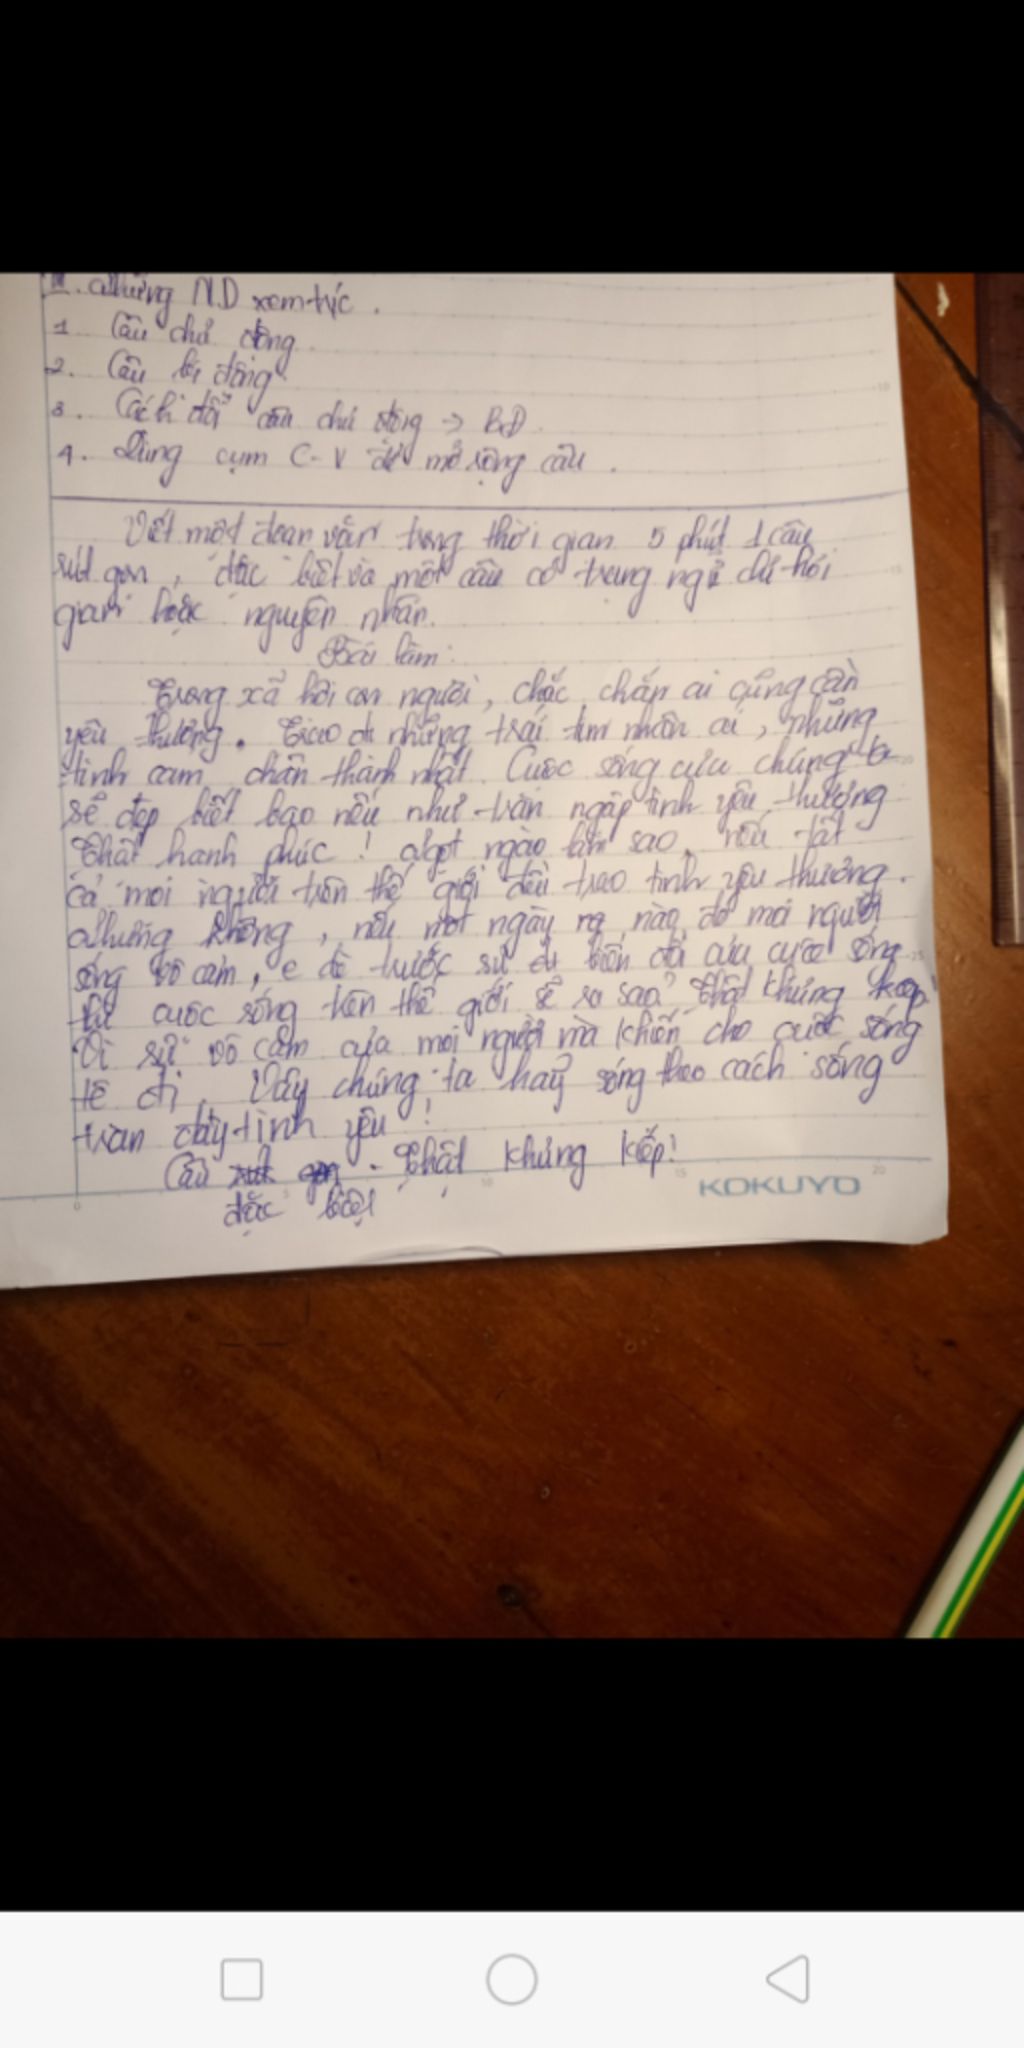 III. Những N.D xem trực.
1. Câu chủ động
2. Câu bị động
3. Cách đổi câu chủ động → BĐ.
4. Dùng cụm C-V để mở rộng câu.
Viết một đoạn văn trong thời gian 5 phút 1 câu
rút gọn, đặc biệt và một câu có trạng ngữ chỉ thời
gian hoặc nguyên nhân.
Bài làm:
Trong xã hội con người, chắc chắn ai cũng cần
yêu thương. Trao đi những trái tim nhân ai, những
tình cam chân thành nhất. Cuôc sống cưu chúng ta
sẽ đẹp biết bao nếu như tràn ngập tình yêu thương
Thât hanh phúc! Ngọt ngào làm sao, nếu tất
cả mọi người trên thế giới đều trao tình yêu thương.
Nhưng không, nếu một ngày nào đó mọi người
sống vô cảm, e dè trước sự biến đổi của cuộc sống
thì cuôc sống trên thế giới sẽ ra sao? Thật khủng kiếp
Vì sự vô cảm của mọi người mà khiến cho cuộc sống
tẻ đi. Vậy chúng ta hãy sống theo cách sống
tràn đầy tình yêu!
Câu . Thật khủng kiếp!
đặc biệt
KOKUYO